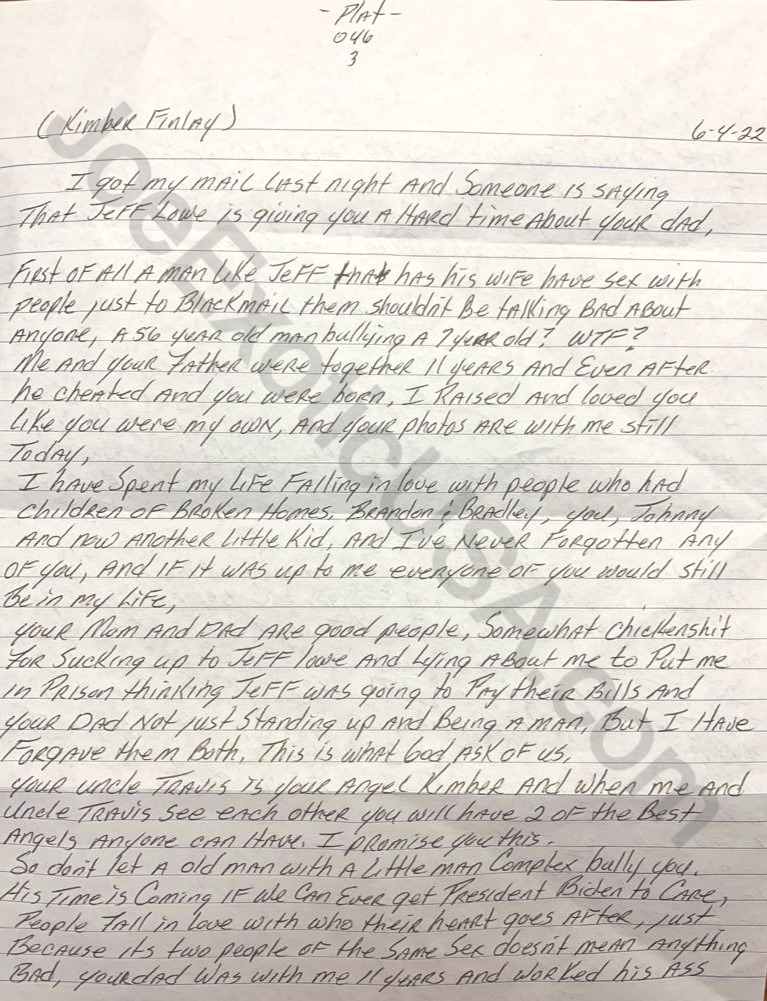 - Plat -
046
3
(Kimber Finlay)
6-4-22
I got my mail last night and someone is saying
That Jeff Lowe is giving you a hard time about your dad,
First of all a man like Jeff that has his wife have sex with
people just to Blackmail them shouldn't be talking bad about
anyone, a 56 year old man bullying a 7 year old? WTF?
Me and your Father were together 11 years and even after
he cheated and you were born, I raised and loved you
like you were my own, and your photos are with me still
Today,
I have spent my life falling in love with people who had
children of Broken Homes. Brandon & Bradley, you, Johnny
and now another little kid, and I've never forgotten any
of you, and if it was up to me everyone of you would still
be in my life,
your Mom and Dad are good people, somewhat chickenshit
for sucking up to Jeff Lowe and lying about me to put me
in prison thinking Jeff was going to pay their bills and
your Dad not just standing up and being a man, but I have
forgave them both. This is what God ask of us.
your uncle Travis is your angel Kimber and when me and
uncle Travis see each other you will have 2 of the best
angels anyone can have. I promise you this.
So don't let a old man with a little man complex bully you.
His time is coming if we can ever get President Biden to care,
People fall in love with who their heart goes after, just
because its two people of the same sex doesn't mean anything
bad, your dad was with me 11 years and worked his ass
JoeExoticUSA.com